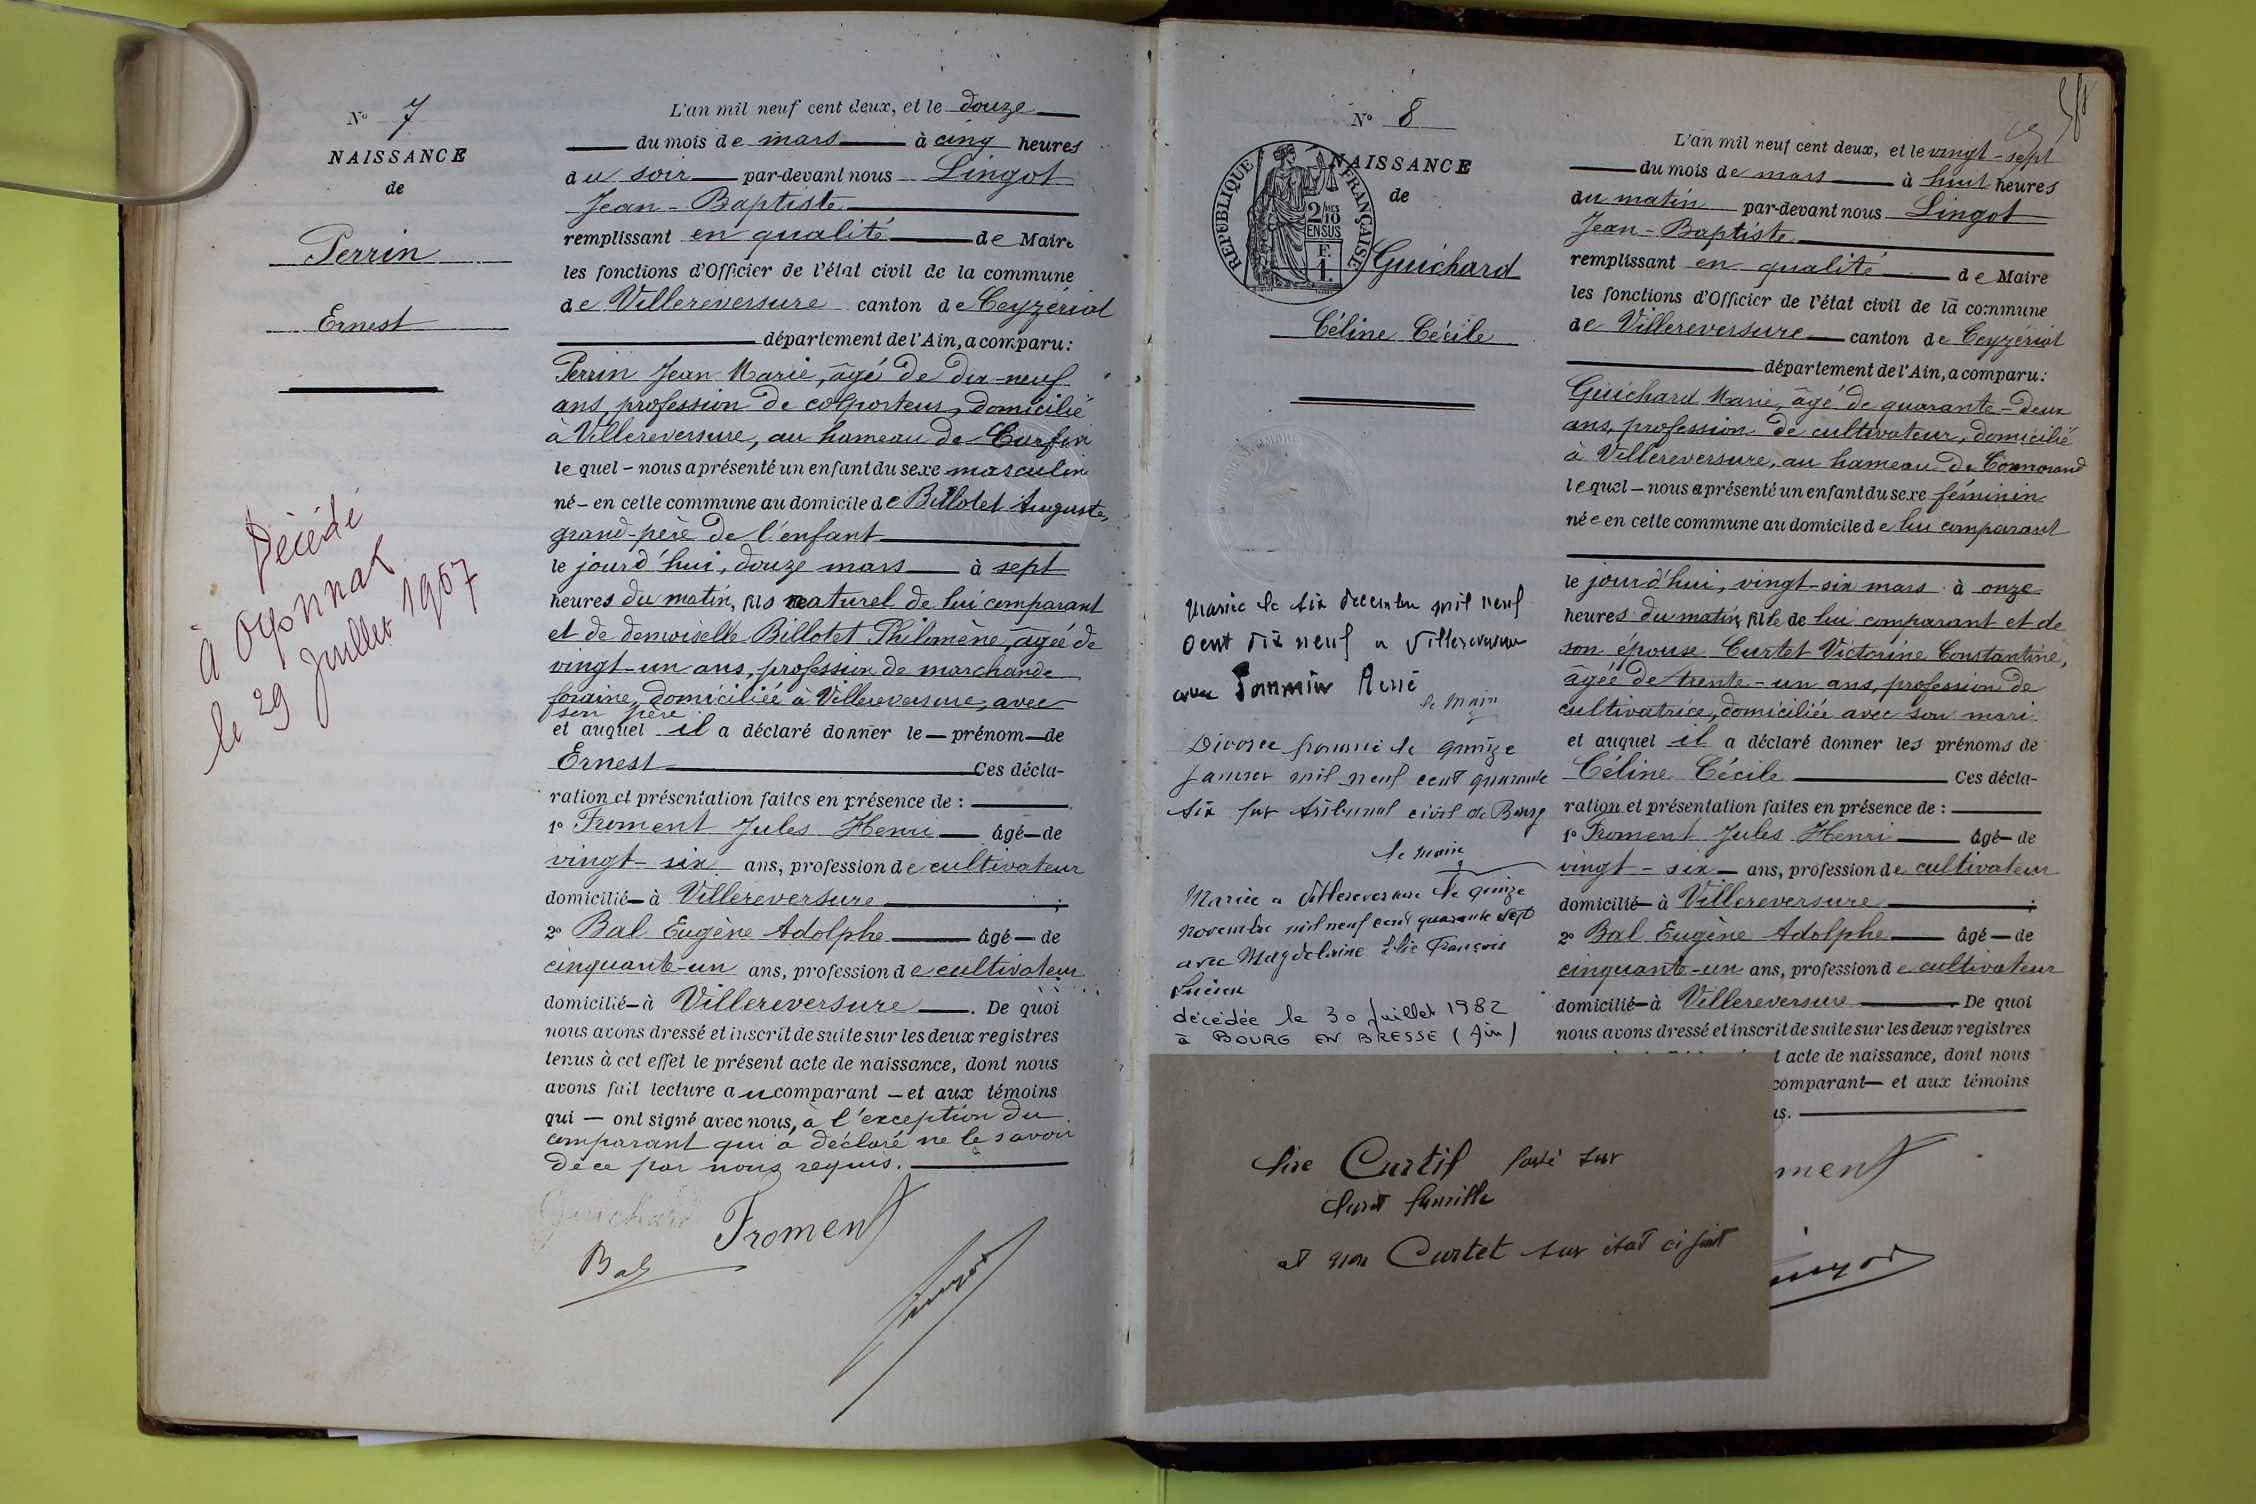 N° 7
NAISSANCE
de
Perrin
Ernest
Décédé
à Oyonnax
le 29 Juillet 1967
L'an mil neuf cent deux, et le douze
du mois de mars à cinq heures
du soir par-devant nous Lingot
Jean-Baptiste
remplissant en qualité de Maire
les fonctions d'Officier de l'état civil de la commune
de Villereversure canton de Ceyzériat
département de l'Ain, a comparu :
Perrin Jean Marie, âgé de dix-neuf
ans, profession de colporteur, domicilié
à Villereversure, au hameau de Curfin
lequel - nous a présenté un enfant du sexe masculin
né - en cette commune au domicile de Billotet Auguste,
grand-père de l'enfant
le jourd'hui, douze mars à sept
heures du matin, fils naturel de lui comparant
et de demoiselle Billotet Philomène, âgée de
vingt-un ans, profession de marchande
foraine, domiciliée à Villereversure, avec
son père
et auquel il a déclaré donner le prénom de
Ernest Ces décla-
ration et présentation faites en présence de :
1° Froment Jules Henri âgé de
vingt-six ans, profession de cultivateur
domicilié à Villereversure ;
2° Bal Eugène Adolphe âgé de
cinquante-un ans, profession de cultivateur
domicilié à Villereversure . De quoi
nous avons dressé et inscrit de suite sur les deux registres
tenus à cet effet le présent acte de naissance, dont nous
avons fait lecture au comparant - et aux témoins
qui - ont signé avec nous, à l'exception du
comparant qui a déclaré ne le savoir
de ce par nous requis.
Guichard Froment
Bal
Lingot
N° 8
NAISSANCE
de
RÉPUBLIQUE FRANÇAISE
2/10 EN SUS
F. 1
Guichard
Céline Cécile
Mariée le six décembre mil neuf
cent dix neuf à Villereversure
avec Pommier René
le maire
Divorce prononcé le quinze
Janvier mil neuf cent quarante
six par tribunal civil de Bourg
le maire
Mariée à Villereversure le quinze
novembre mil neuf cent quarante sept
avec Magdelaine Elie François
Lucien
décédée le 30 Juillet 1982
à BOURG EN BRESSE (Ain)
L'an mil neuf cent deux, et le vingt-sept
du mois de mars à huit heures
du matin par-devant nous Lingot
Jean-Baptiste
remplissant en qualité de Maire
les fonctions d'Officier de l'état civil de la commune
de Villereversure canton de Ceyzériat
département de l'Ain, a comparu :
Guichard Marie, âgé de quarante-deux
ans, profession de cultivateur, domicilié
à Villereversure, au hameau de Cormorand
lequel - nous a présenté un enfant du sexe féminin
née en cette commune au domicile de lui comparant
le jourd'hui, vingt-six mars à onze
heures du matin, fille de lui comparant et de
son épouse Curtet Victorine Constantine,
âgée de trente-un ans, profession de
cultivatrice, domiciliée avec son mari
et auquel il a déclaré donner les prénoms de
Céline Cécile Ces décla-
ration et présentation faites en présence de :
1° Froment Jules Henri âgé de
vingt-six ans, profession de cultivateur
domicilié à Villereversure ;
2° Bal Eugène Adolphe âgé de
cinquante-un ans, profession de cultivateur
domicilié à Villereversure De quoi
nous avons dressé et inscrit de suite sur les deux registres
t acte de naissance, dont nous
comparant - et aux témoins
us.
ment
lire Curtil porté sur
livret famille
et non Curtet sur état ci joint